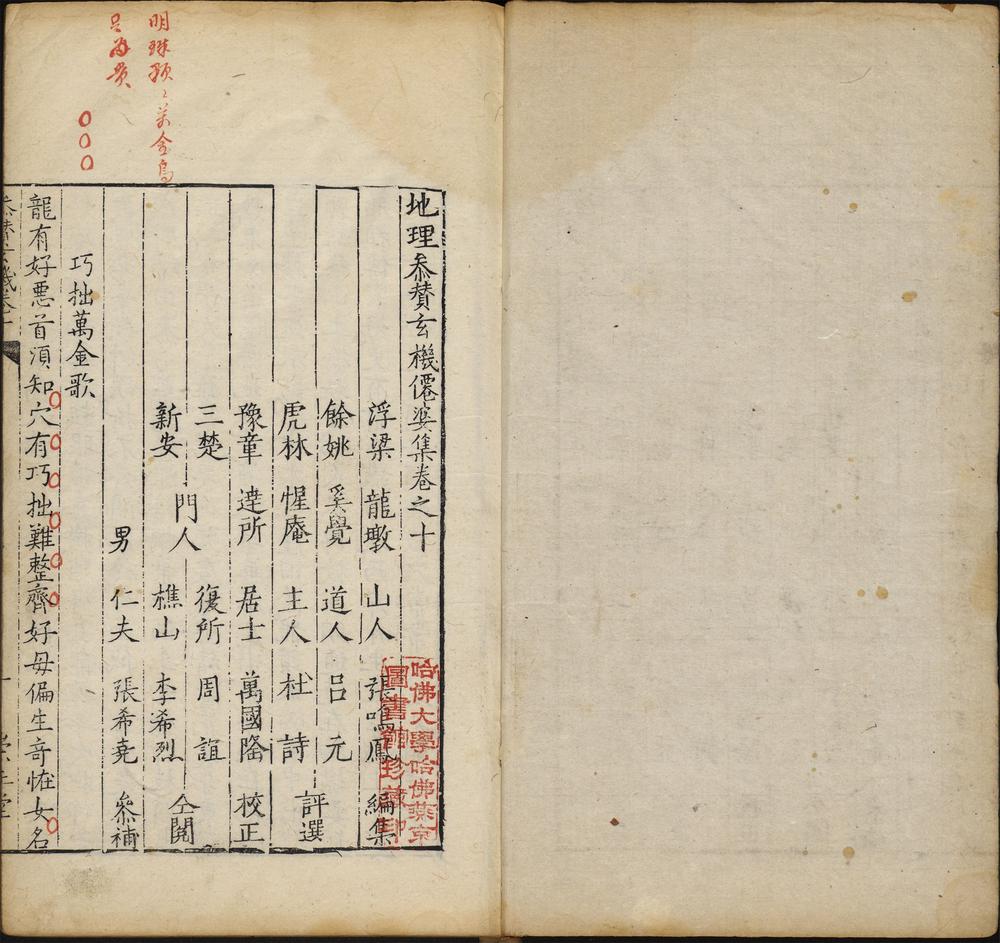 地理叅賛玄機僊婆集卷之十
浮梁 龍墩 山人 張鳴鳳 編集
餘姚 奚覺 道人 吕元
虎林 惺庵 主人 杜詩
評選
豫章 達所 居士 萬國隆 校正
三楚
新安
門人
復所 周誼
樵山 李希烈
仝閱
男 仁夫 張希堯 叅補
巧拙萬金歌
龍有好悪首湏知穴有巧拙難整齊好母偏生奇怪女名
哈佛大學哈佛燕京
圖書館珍藏印
明珠